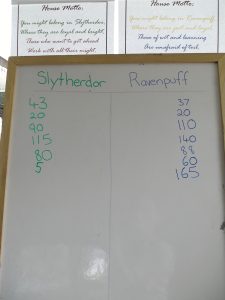 House Motto:
You might belong in Slytherdor,
Where they are loyal and bright,
Those who want to get ahead
Work with all their might.
House Motto:
You might belong in Ravenpuff,
Where they are just and loyal,
Those of wit and learning
Are unafraid of toil.
Slytherdor Ravenpuff
43 37
20 20
90 110
115 140
80 88
5 60
165